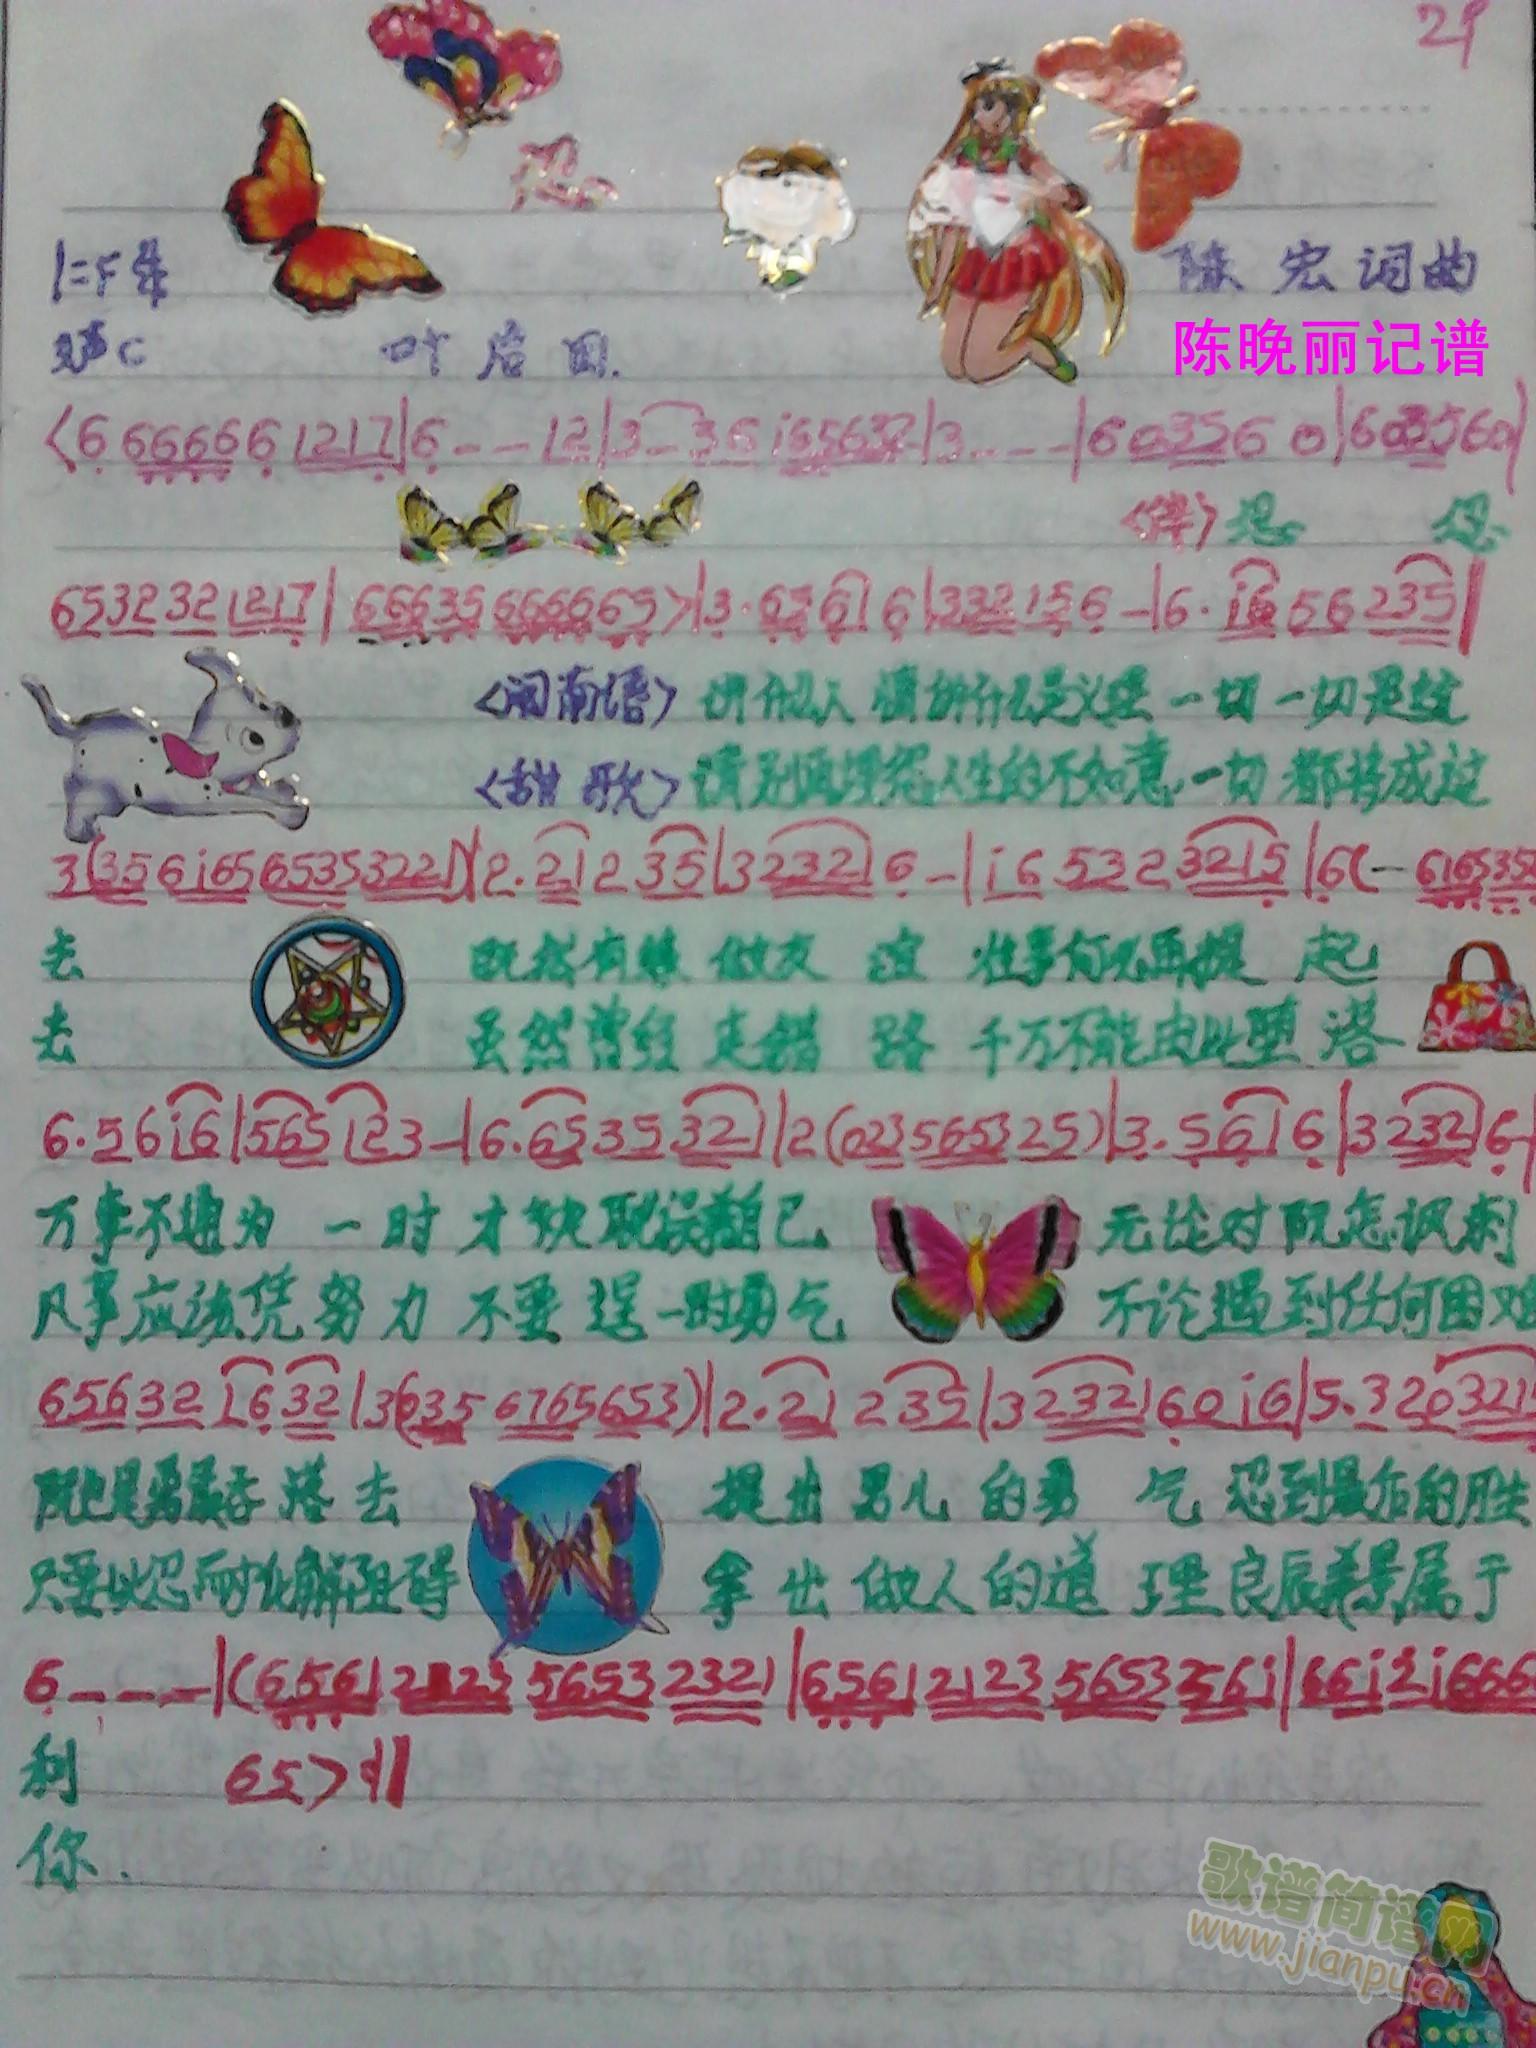 21
忍
1=F 4/4
陈宏词曲
男声C 叶启田.
陈晚丽记谱
<6 66666 1217|6--12|3-36 i65637|3---|603560|603560|
<伴>忍 忍
6532321217|66635666665>|3·65616|332156-|6·i656235|
<闽南语> 讲什么人情讲什么是义理 一切一切是过
<甜歌> 请别再埋怨人生的不如意 一切都将成过
3(356i6565353221)|2·21235|323216-|i65323215|6(-
去 既然有缘做友谊 往事何必再提起
去 虽然曾经走错路 千万不能由此堕落
6·56i6|565123-|6·6535321|2(02356532 5)|3·5616|323216-|
万事不通为一时 才块耽误着自己 无论对阮怎讽刺
凡事应该凭努力 不要逞一时勇气 不论遇到任何困难
656321632|3(0356765653)|2·21235|3232160i6|5·320321
阮也是勇敢吞落去 提出男儿的勇气 忍到最后的胜
只要以忍耐化解阻碍 拿出做人的道理 良辰美景属于
6---|(656121235653232 1|656121235653256i|66i2i666
利 65>:||
你.
歌谱简谱网
www.jianpu.cn